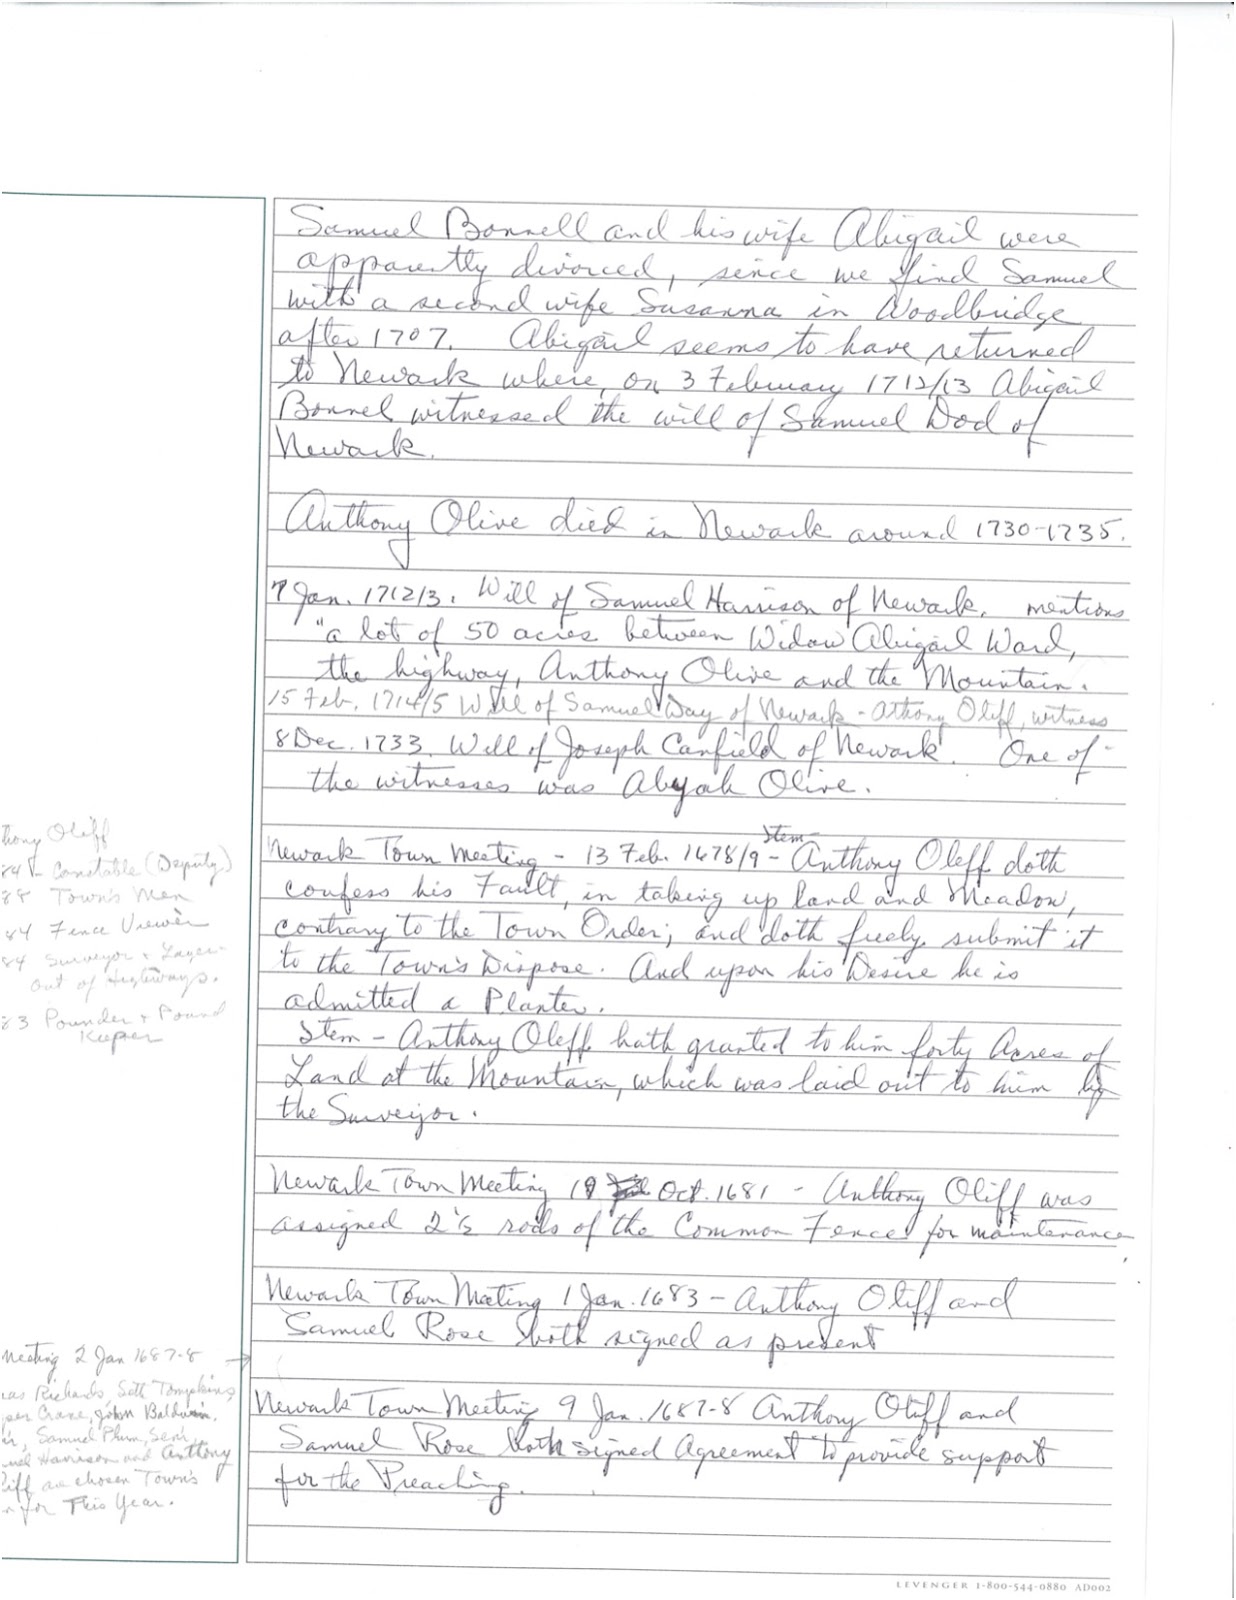 Samuel Bonnell and his wife Abigail were
apparently divorced, since we find Samuel
with a second wife Susanna in Woodbridge
after 1707. Abigail seems to have returned
to Newark where, on 3 February 1712/13 Abigail
Bonnel witnessed the will of Samuel Dod of
Newark.
Anthony Olive died in Newark around 1730-1735.
7 Jan. 1712/3. Will of Samuel Harrison of Newark, mentions
"a lot of 50 acres between Widow Abigail Ward,
the highway, Anthony Olive and the Mountain.
15 Feb. 1714/5 Will of Samuel Day of Newark - Athony Oliff, witness
8 Dec. 1733. Will of Joseph Canfield of Newark. One of
the witnesses was Abyah Olive.
thony Oliff
84 - Constable (Deputy)
88 Town's Men
84 Fence Viewer
84 Surveyor + Layer-
out of Highways.
83 Pounder + Pound
Keeper
Item-
Newark Town Meeting - 13 Feb. 1678/9 - Anthony Oleff doth
confess his Fault, in taking up land and Meadow,
contrary to the Town Order; and doth freely submit it
to the Town's Dispose. And upon his Desire he is
admitted a Planter.
Item - Anthony Oleff hath granted to him forty Acres of
Land at the Mountain, which was laid out to him by
the Surveyor.
Newark Town Meeting 19 Oct. 1681 - Anthony Oliff was
assigned 2 1/2 rods of the Common Fence for maintenance.
Newark Town Meeting 1 Jan. 1683 - Anthony Oliff and
Samuel Rose both signed as present
Meeting 2 Jan 1687-8 →
as Richards, Seth Tompkins,
per Crane, John Baldwin,
Samuel Plum, Senr,
uel Harrison and Anthony
liff are chosen Town's
n for This Year.
Newark Town Meeting 9 Jan. 1687-8 Anthony Oliff and
Samuel Rose both signed Agreement to provide support
for the Preaching.
LEVENGER 1-800-544-0880 AD002